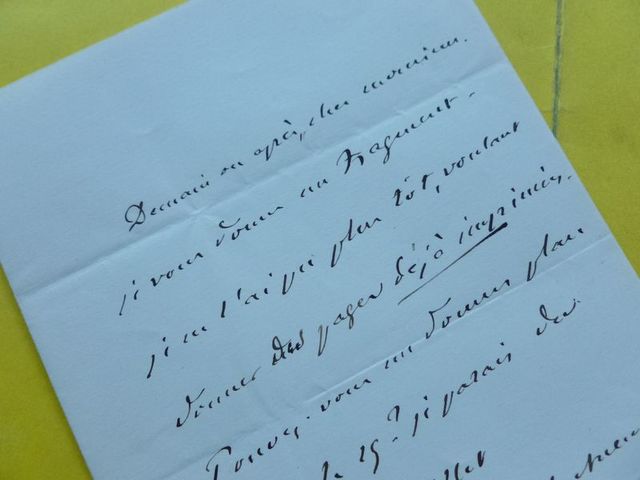 Demain ou après, cher monsieur.
je vous donne un Fragment.
je ne l'ai pu plus tôt, voulant
donner des pages déjà imprimées.
Pouvez-vous me donner place
le 25? je parais du